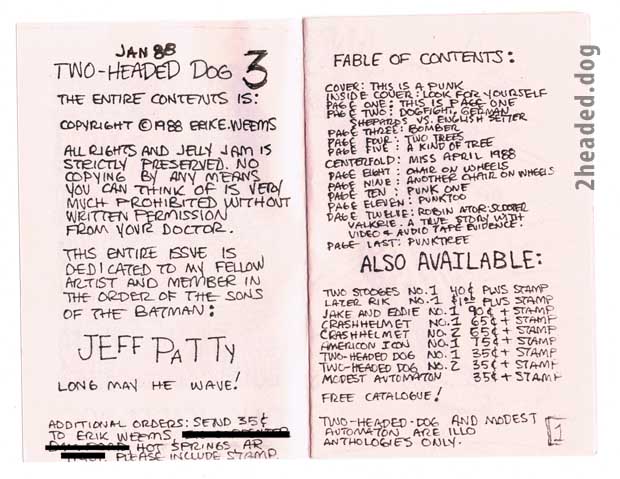 JAN 88
TWO-HEADED DOG 3
THE ENTIRE CONTENTS IS:
COPYRIGHT © 1988 ERIKE.WEEMS
ALL RIGHTS AND JELLY JAM IS
STRICTLY PRESERVED. NO
COPYING BY ANY MEANS
YOU CAN THINK OF IS VERY
MUCH PROHIBITED WITHOUT
WRITTEN PERMISSION
FROM YOUR DOCTOR.
THIS ENTIRE ISSUE IS
DEDICATED TO MY FELLOW
ARTIST AND MEMBER IN
THE ORDER OF THE SONS
OF THE BATMAN:
JEFF PATTY
LONG MAY HE WAVE!
ADDITIONAL ORDERS: SEND 35¢
TO ERIK WEEMS,
HOT SPRINGS, AR
PLEASE INCLUDE STAMP.
FABLE OF CONTENTS:
COVER: THIS IS A PUNK
INSIDE COVER: LOOK FOR YOURSELF
PAGE ONE: THIS IS PAGE ONE
PAGE TWO: DOGFIGHT, GERMAN
SHEPARDS VS. ENGLISH SETTER
PAGE THREE: BOMBER
PAGE FOUR: TWO TREES
PAGE FIVE: A KIND OF TREE
CENTERFOLD: MISS APRIL 1988
PAGE EIGHT: CHAIR ON WHEELS
PAGE NINE: ANOTHER CHAIR ON WHEELS
PAGE TEN: PUNK ONE
PAGE ELEVEN: PUNKTOO
PAGE TWELVE: ROBIN ATOR: SCOOTER
VALKRIE. A TRUE STORY WITH
VIDEO & AUDIO TAPE EVIDENCE.
PAGE LAST: PUNKTREE
ALSO AVAILABLE:
TWO STOOGES NO.1 40¢ PLUS STAMP
LAZER RIK NO.1 PLUS STAMP
JAKE AND EDDIE NO.1 90¢ + STAMP
CRASHHELMET NO.1 65¢ + STAMP
CRASHHELMET NO.2 65¢ + STAMP
AMERICON ICON NO.1 75¢ + STAMP
TWO-HEADED DOG NO.1 35¢ + STAMP
TWO-HEADED DOG NO.2 35¢ + STAMP
MODEST AUTOMATON 35¢ + STAMP
FREE CATALOGUE!
TWO-HEADED-DOG AND MODEST
AUTOMATON ARE ILLO
ANTHOLOGIES ONLY.
1
2headed.dog